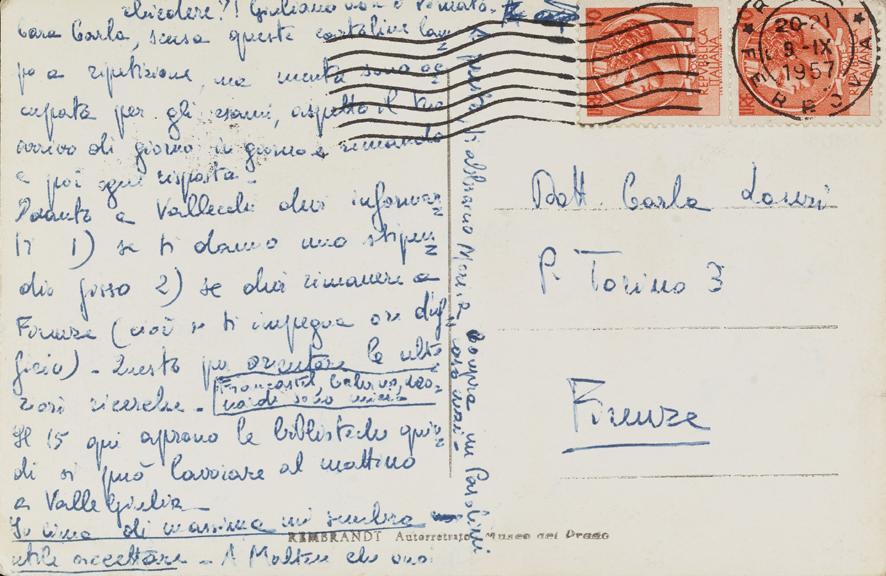 chiedere?! Giuliano non è tornato.
Cara Carla, scusa queste cartoline
po a ripetizione, ma mentre sono oc
cupata per gli esami, aspetto il tuo
arrivo di giorno in giorno e rimando
e poi ogni risposta.
a Vallecchi devi informar
ti 1) se ti danno uno stipen
dio fisso 2) se devi rimanere a
Firenze (cioè se ti impegna ore d'uf
ficio) - Questo per orientare le ulte
riori ricerche -
Francastel, Calvesi,
sono
Il 15 qui aprono le biblioteche quin
di si può lavorare al mattino
a Valle Giulia
In linea di massima mi sembra
utile accettare - A
ti abbraccio Marisa
Compra un Pasolini
così
LIRE 10
REPVBBLICA
ITALIANA
LIRE
ITALIANA
20-21
9-IX
1957
Dott. Carla Lonzi
P. Torino 3
Firenze
REMBRANDT Autorretrato Museo del Prado